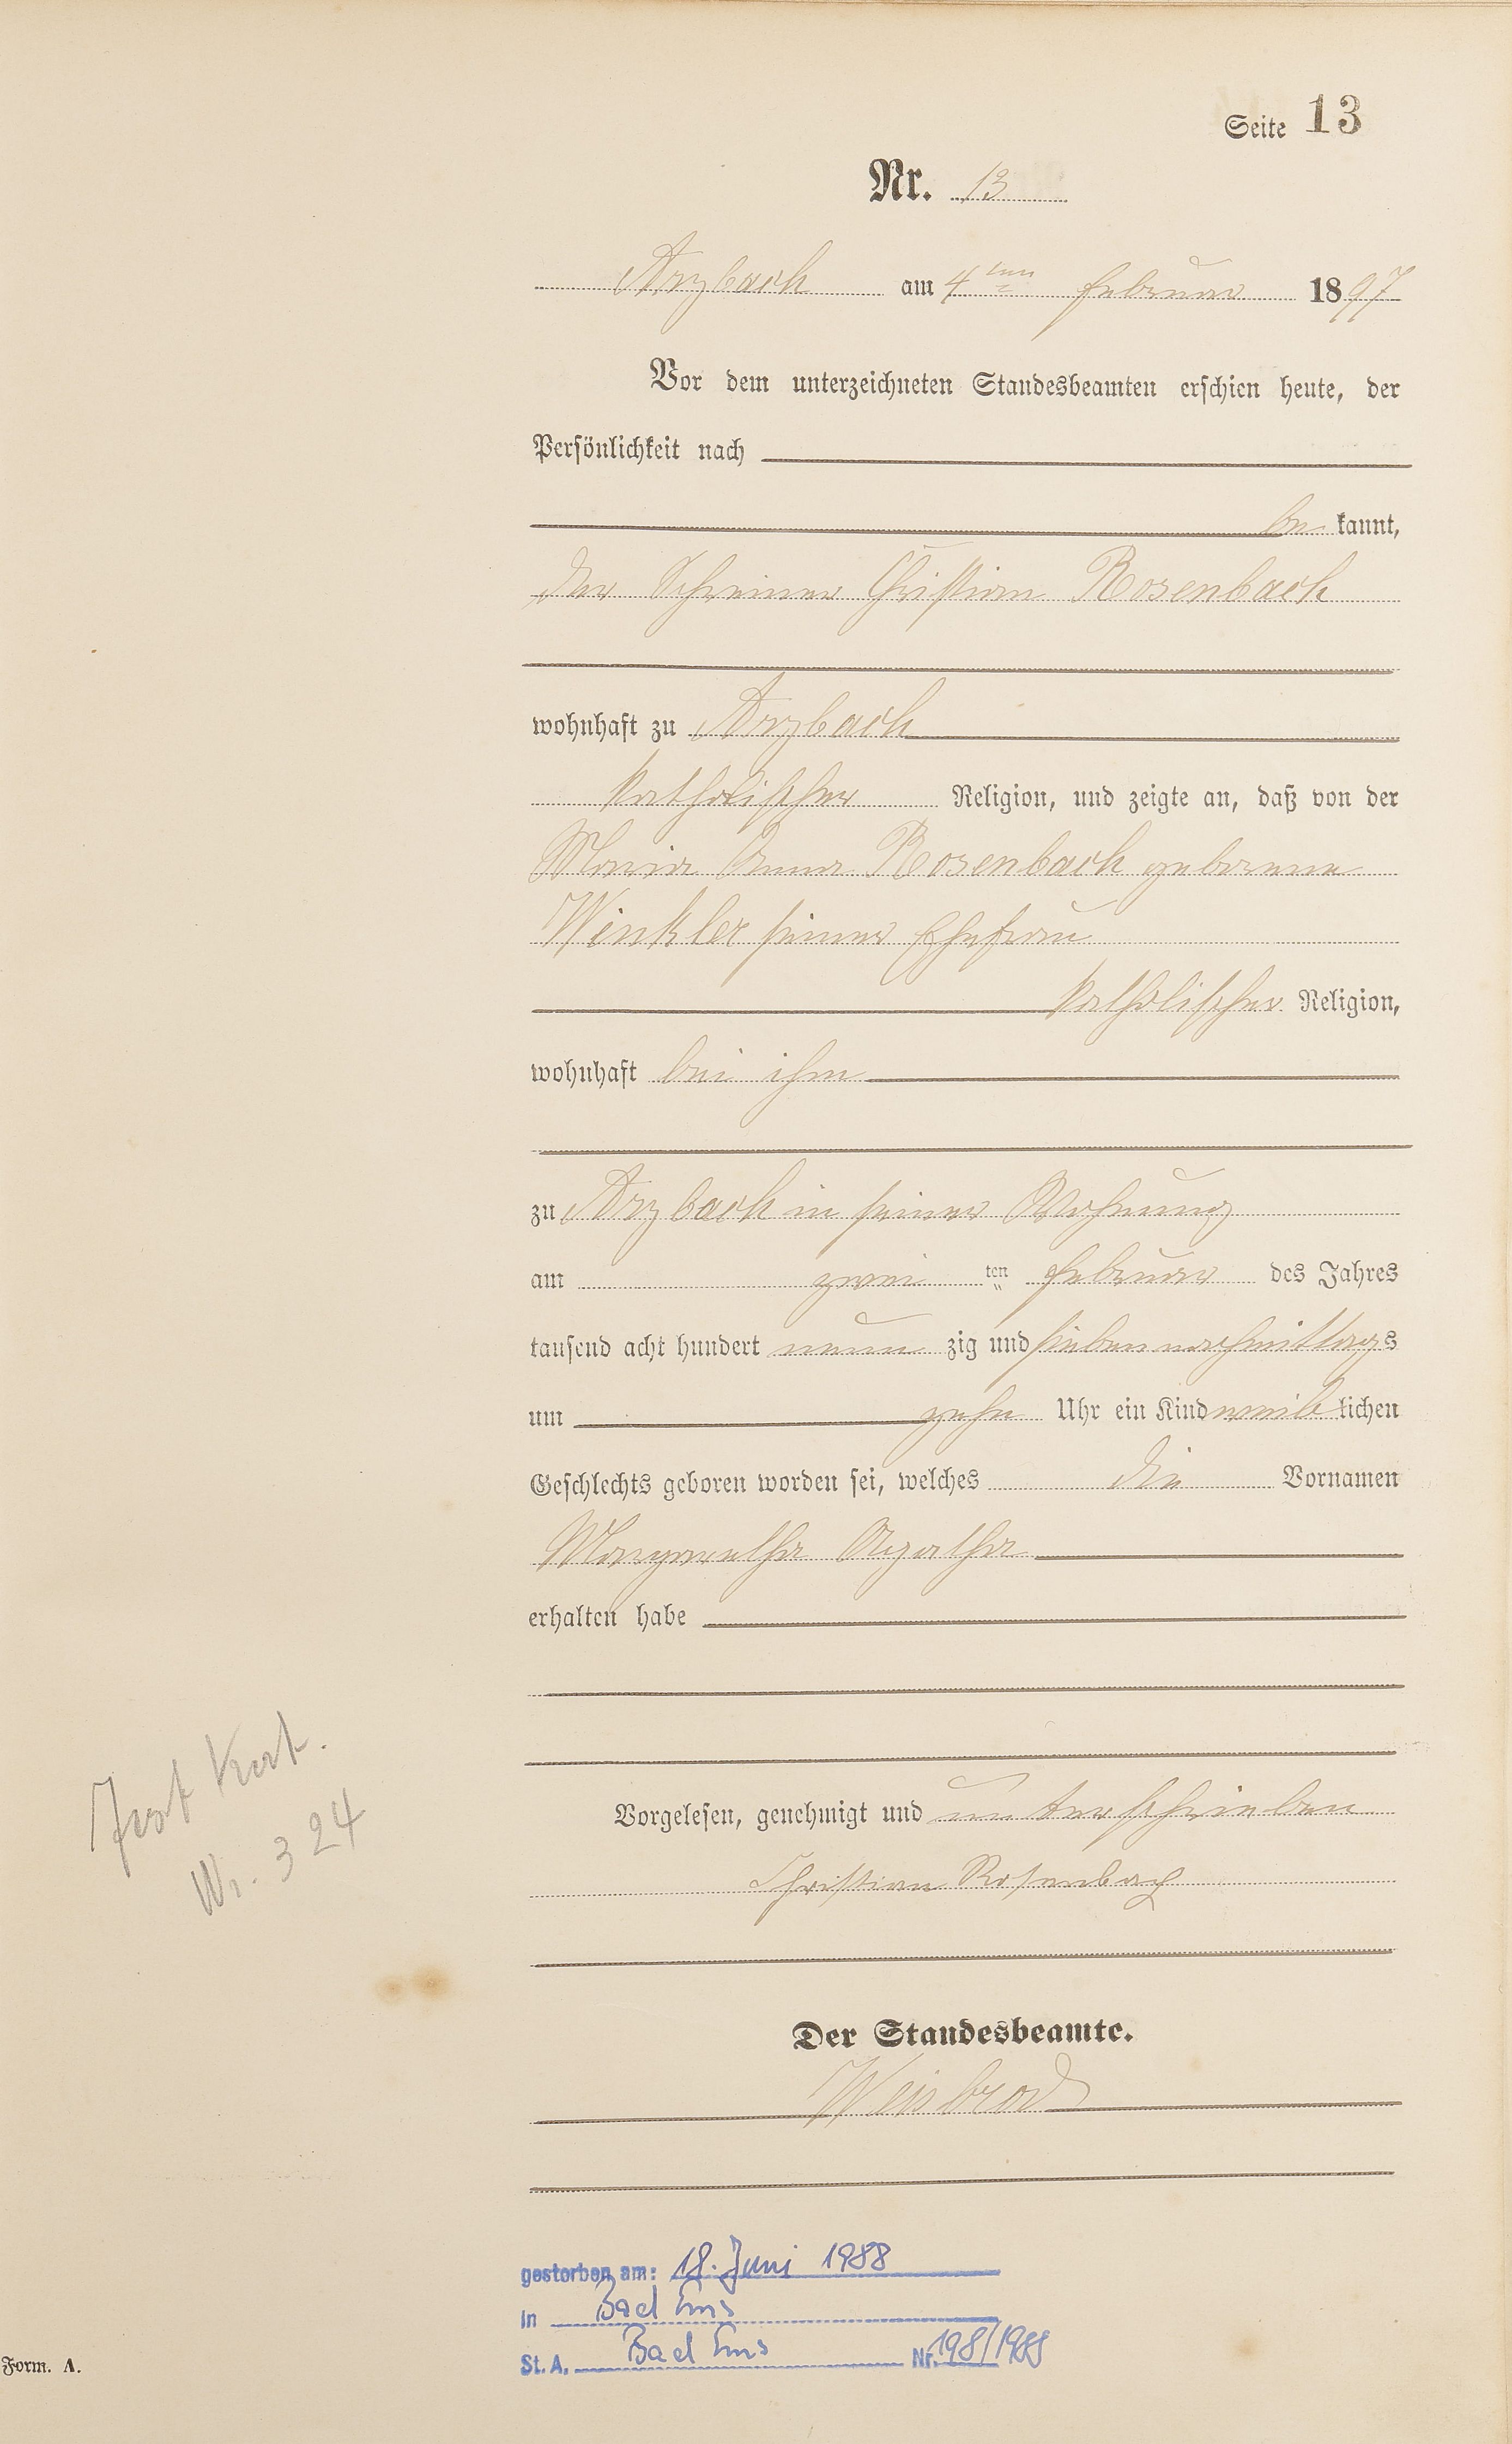 Seite 13
Nr. 13
Arzbach am 4ten Februar 1897
Vor dem unterzeichneten Standesbeamten erschien heute, der
Persönlichkeit nach
be kannt,
der Schreiner Christian Rosenbach
wohnhaft zu Arzbach
katholischer Religion, und zeigte an, daß von der
Maria Anna Rosenbach geborene
Winkler seiner Ehefrau
katholischer Religion,
wohnhaft bei ihm
zu Arzbach in seiner Wohnung
am zwei ten Februar des Jahres
tausend acht hundert neun zig und sieben nachmittags
um zehn Uhr ein Kind weib lichen
Geschlechts geboren worden sei, welches die Vornamen
Margaretha Agatha
erhalten habe
Vorgelesen, genehmigt und unterschrieben
Christian Rosenbach
Nr. 324
Der Standesbeamte.
Weisbrod
gestorben am: 18. Juni 1988
in Bad Ems
St. A. Bad Ems Nr. 198/1988
Form. A.